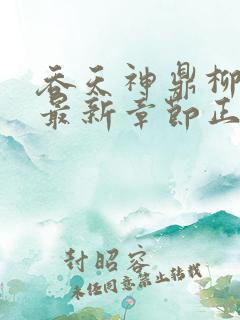 吞天神鼎柳
最新章节正
封昭容
未经同意禁止转载